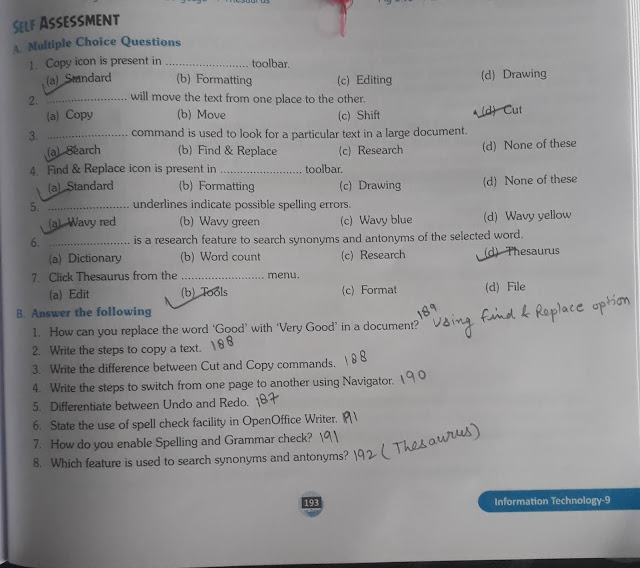 SELF ASSESSMENT
A. Multiple Choice Questions
1. Copy icon is present in ........................ toolbar.
(a) Standard (b) Formatting (c) Editing (d) Drawing
2. ........................ will move the text from one place to the other.
(a) Copy (b) Move (c) Shift (d) Cut
3. ........................ command is used to look for a particular text in a large document.
(a) Search (b) Find & Replace (c) Research (d) None of these
4. Find & Replace icon is present in ........................ toolbar.
(a) Standard (b) Formatting (c) Drawing (d) None of these
5. ........................ underlines indicate possible spelling errors.
(a) Wavy red (b) Wavy green (c) Wavy blue (d) Wavy yellow
6. ........................ is a research feature to search synonyms and antonyms of the selected word.
(a) Dictionary (b) Word count (c) Research (d) Thesaurus
7. Click Thesaurus from the ........................ menu.
(a) Edit (b) Tools (c) Format (d) File
B. Answer the following
1. How can you replace the word 'Good' with 'Very Good' in a document? 189 Using find & Replace option
2. Write the steps to copy a text. 188
3. Write the difference between Cut and Copy commands. 188
4. Write the steps to switch from one page to another using Navigator. 190
5. Differentiate between Undo and Redo. 187
6. State the use of spell check facility in OpenOffice Writer. 191
7. How do you enable Spelling and Grammar check? 191
8. Which feature is used to search synonyms and antonyms? 192 (Thesaurus)
193
Information Technology-9